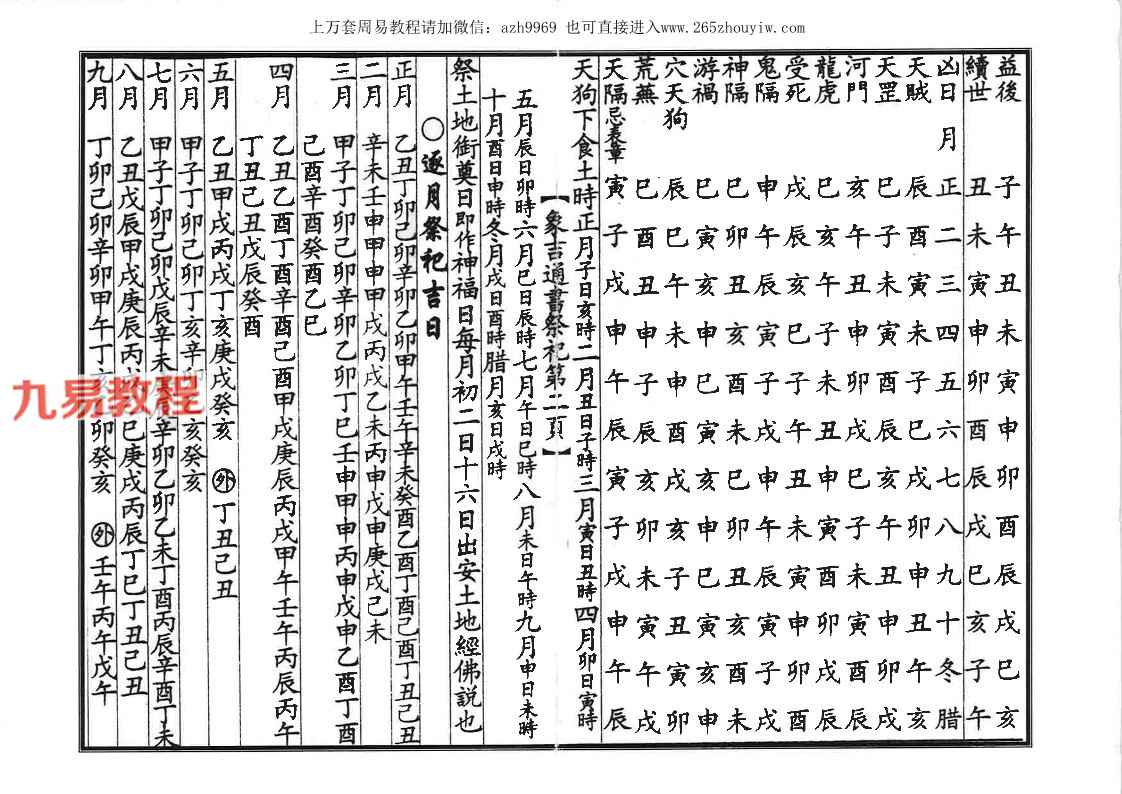 上万套周易教程请加微信：azh9969 也可直接进入www.265zhouyiw.com
益後 子午丑未寅申卯酉辰戌巳亥
續世 丑未寅申卯酉辰戌巳亥子午
凶日 月 正二三四五六七八九十冬腊
天賊 辰酉寅未子巳戌卯申丑午亥
天罡 巳子未寅酉辰亥午丑申卯戌
河門 亥午丑申卯戌巳子未寅酉辰
龍虎 巳亥午子未丑申寅酉卯戌辰
受死 戌辰亥巳子午丑未寅申卯酉
鬼隔 申午辰寅子戌申午辰寅子戌
神隔 巳卯丑亥酉未巳卯丑亥酉未
游禍 巳寅亥申巳寅亥申巳寅亥申
穴天狗 辰巳午未申酉戌亥子丑寅卯
荒蕪 巳酉丑申子辰亥卯未寅午戌
天隔忌表章 寅子戌申午辰寅子戌申午辰
天狗下食土時正月子日亥時二月丑日子時三月寅日丑時四月卯日寅時
五月辰日卯時六月巳日辰時七月午日巳時八月未日午時九月申日未時
十月酉日申時冬月戌日酉時腊月亥日戌時
【象吉通書祭祀第二頁】
祭土地衙奠日即作神福日每月初二日十六日出安土地經佛說也
○逐月祭祀吉日
正月 乙丑丁卯己卯辛卯乙卯甲午壬午辛未癸酉乙酉丁酉己酉丁丑己丑
二月 辛未壬申甲申甲戌丙戌乙未丙申戊申庚戌己未
三月 甲子丁卯己卯辛卯乙卯丁巳壬申甲申丙申戊申乙酉丁酉
己酉辛酉癸酉乙巳
四月 乙丑乙酉丁酉辛酉己酉甲戌庚辰丙戌甲午壬午丙辰丙午
丁丑己丑戊辰癸酉
五月 乙丑甲戌丙戌丁亥庚戌癸亥 外 丁丑己丑
六月 甲子丁卯己卯丁亥辛卯 亥癸亥
七月 甲子丁卯己卯戊辰辛未 辛卯乙卯乙未丁酉丙辰辛酉丁未
八月 乙丑戊辰甲戌庚辰丙 巳庚戌丙辰丁巳丁丑己丑
九月 丁卯己卯辛卯甲午丁亥 卯癸亥 外 壬午丙午戊午
九易教程